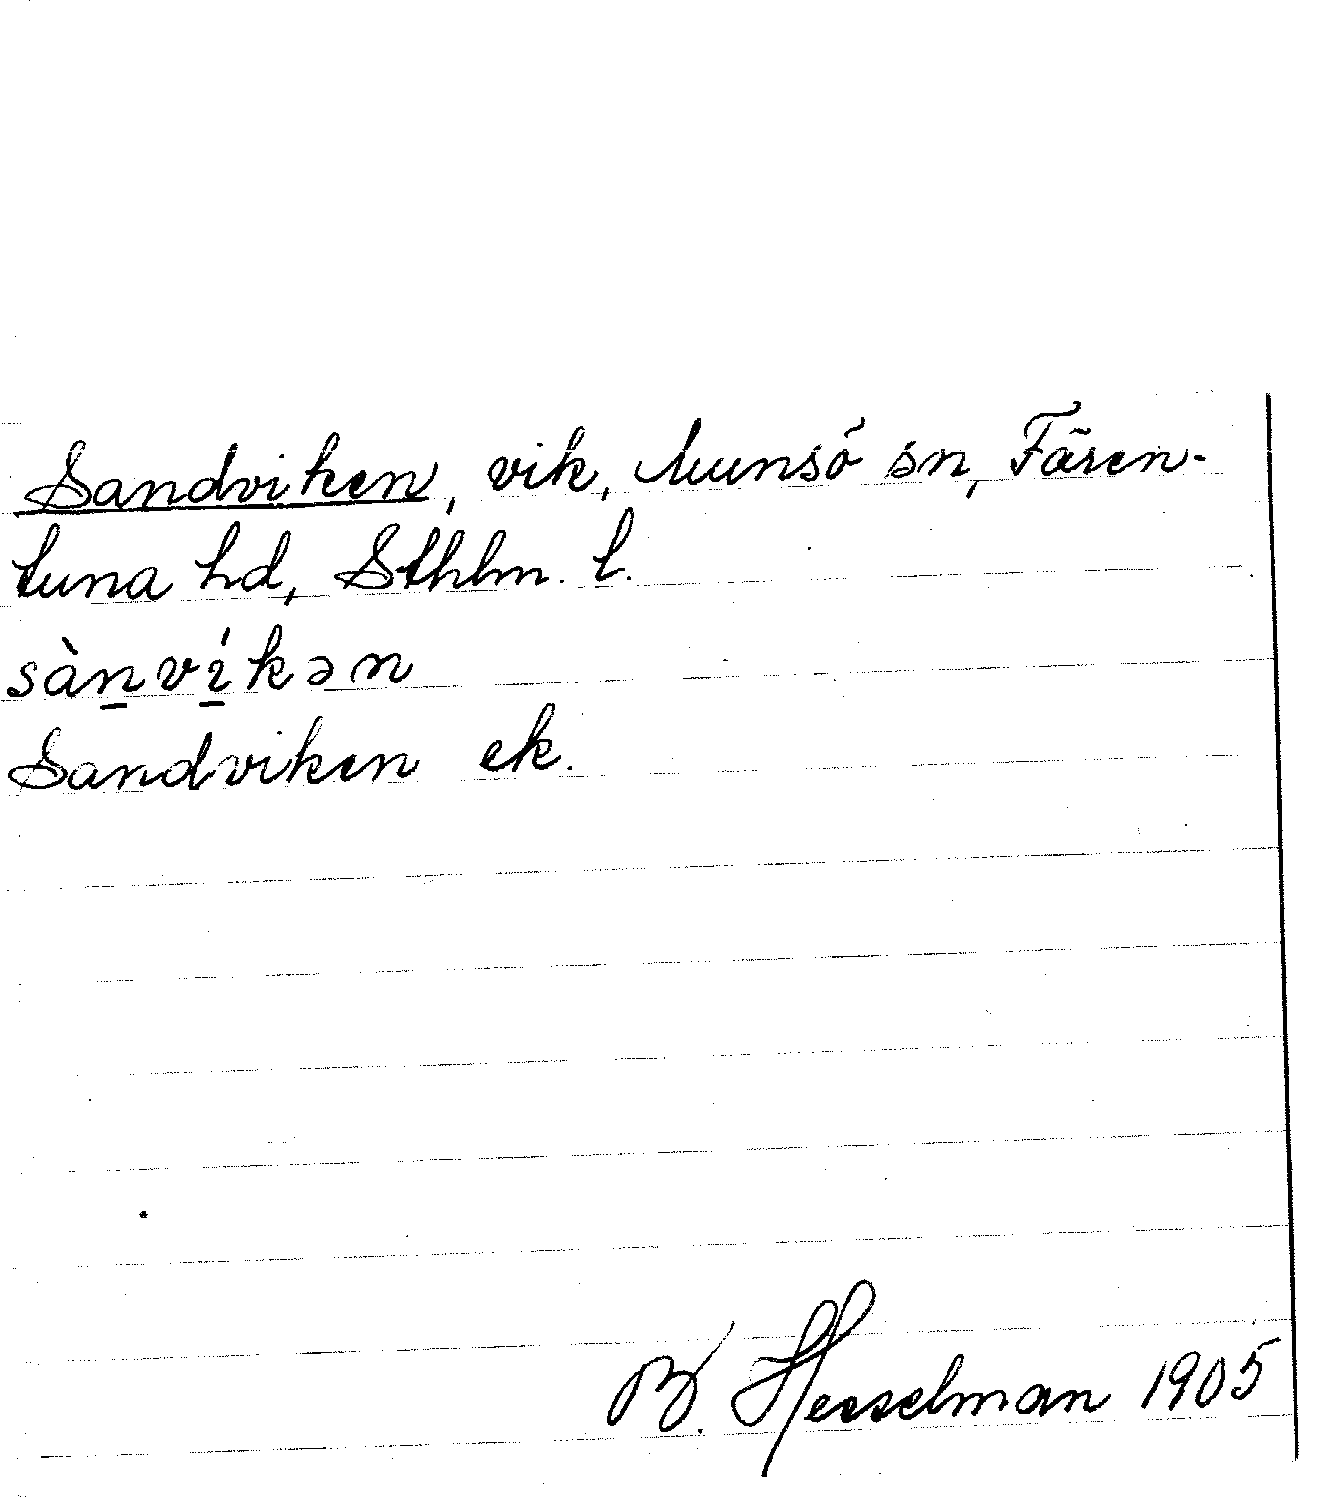 Sandviken, vik, Munsö sn, Fären-
tuna hd, Sthlm. l.
sàn̲ví̲kən
Sandviken ek.
B. Hesselman 1905